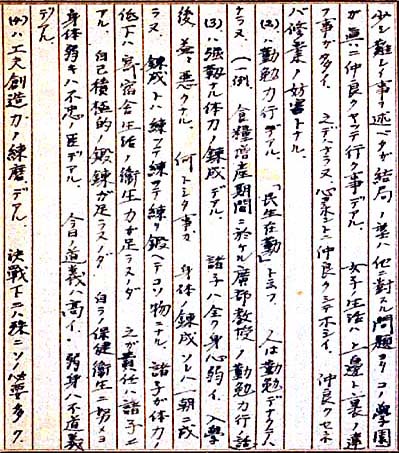 少シ難シイ事ヲ述ベタガ結局ノ要ハ他ニ對スル問題ヨリコノ學園
ガ真ニ仲良クヤッテ行ク事デアル 女子生活ハトモスルト表ト裏ノ違
フ事ガ多イ 之デハナラヌ心ヲ柔ニ仲良クシテホシイ 仲良クセネ
バ修業ノ妨害トナル
(2)ハ勤勉力行デアル 「民生在勤」ト云フ 人ハ勤勉デナクテハ
ナラヌ (一例、食糧増産期間ニ於ケル廣部教授ノ勤勉力行ノ話)
(3)ハ強靱ナ体力ノ錬成デアル 諸子ハ全ク身心弱イ 入學
後益々悪クナル 何トシタ事カ 身体ノ錬成ソレハ一朝ニ成
ラヌ 錬成トハ練ッテ練ッテ練リ鍛ヘテコソ物ニナル 諸子ガ体力
低下ハ寄宿舎生活ノ衛生力ガ足ラヌノダ 之ガ責任ハ諸子ニ
アル 自己積極的ノ鍛錬ガ足ラヌノダ 自ラノ保健衛生ニ努メヨ
身体弱キハ不忠ノ臣デアル 今日ノ道義ハ高イ、弱身ハ不道義
デアル
(4)ハ工夫創造力ノ練磨デアル 決戰下ニハ殊ニソノ必要多ク